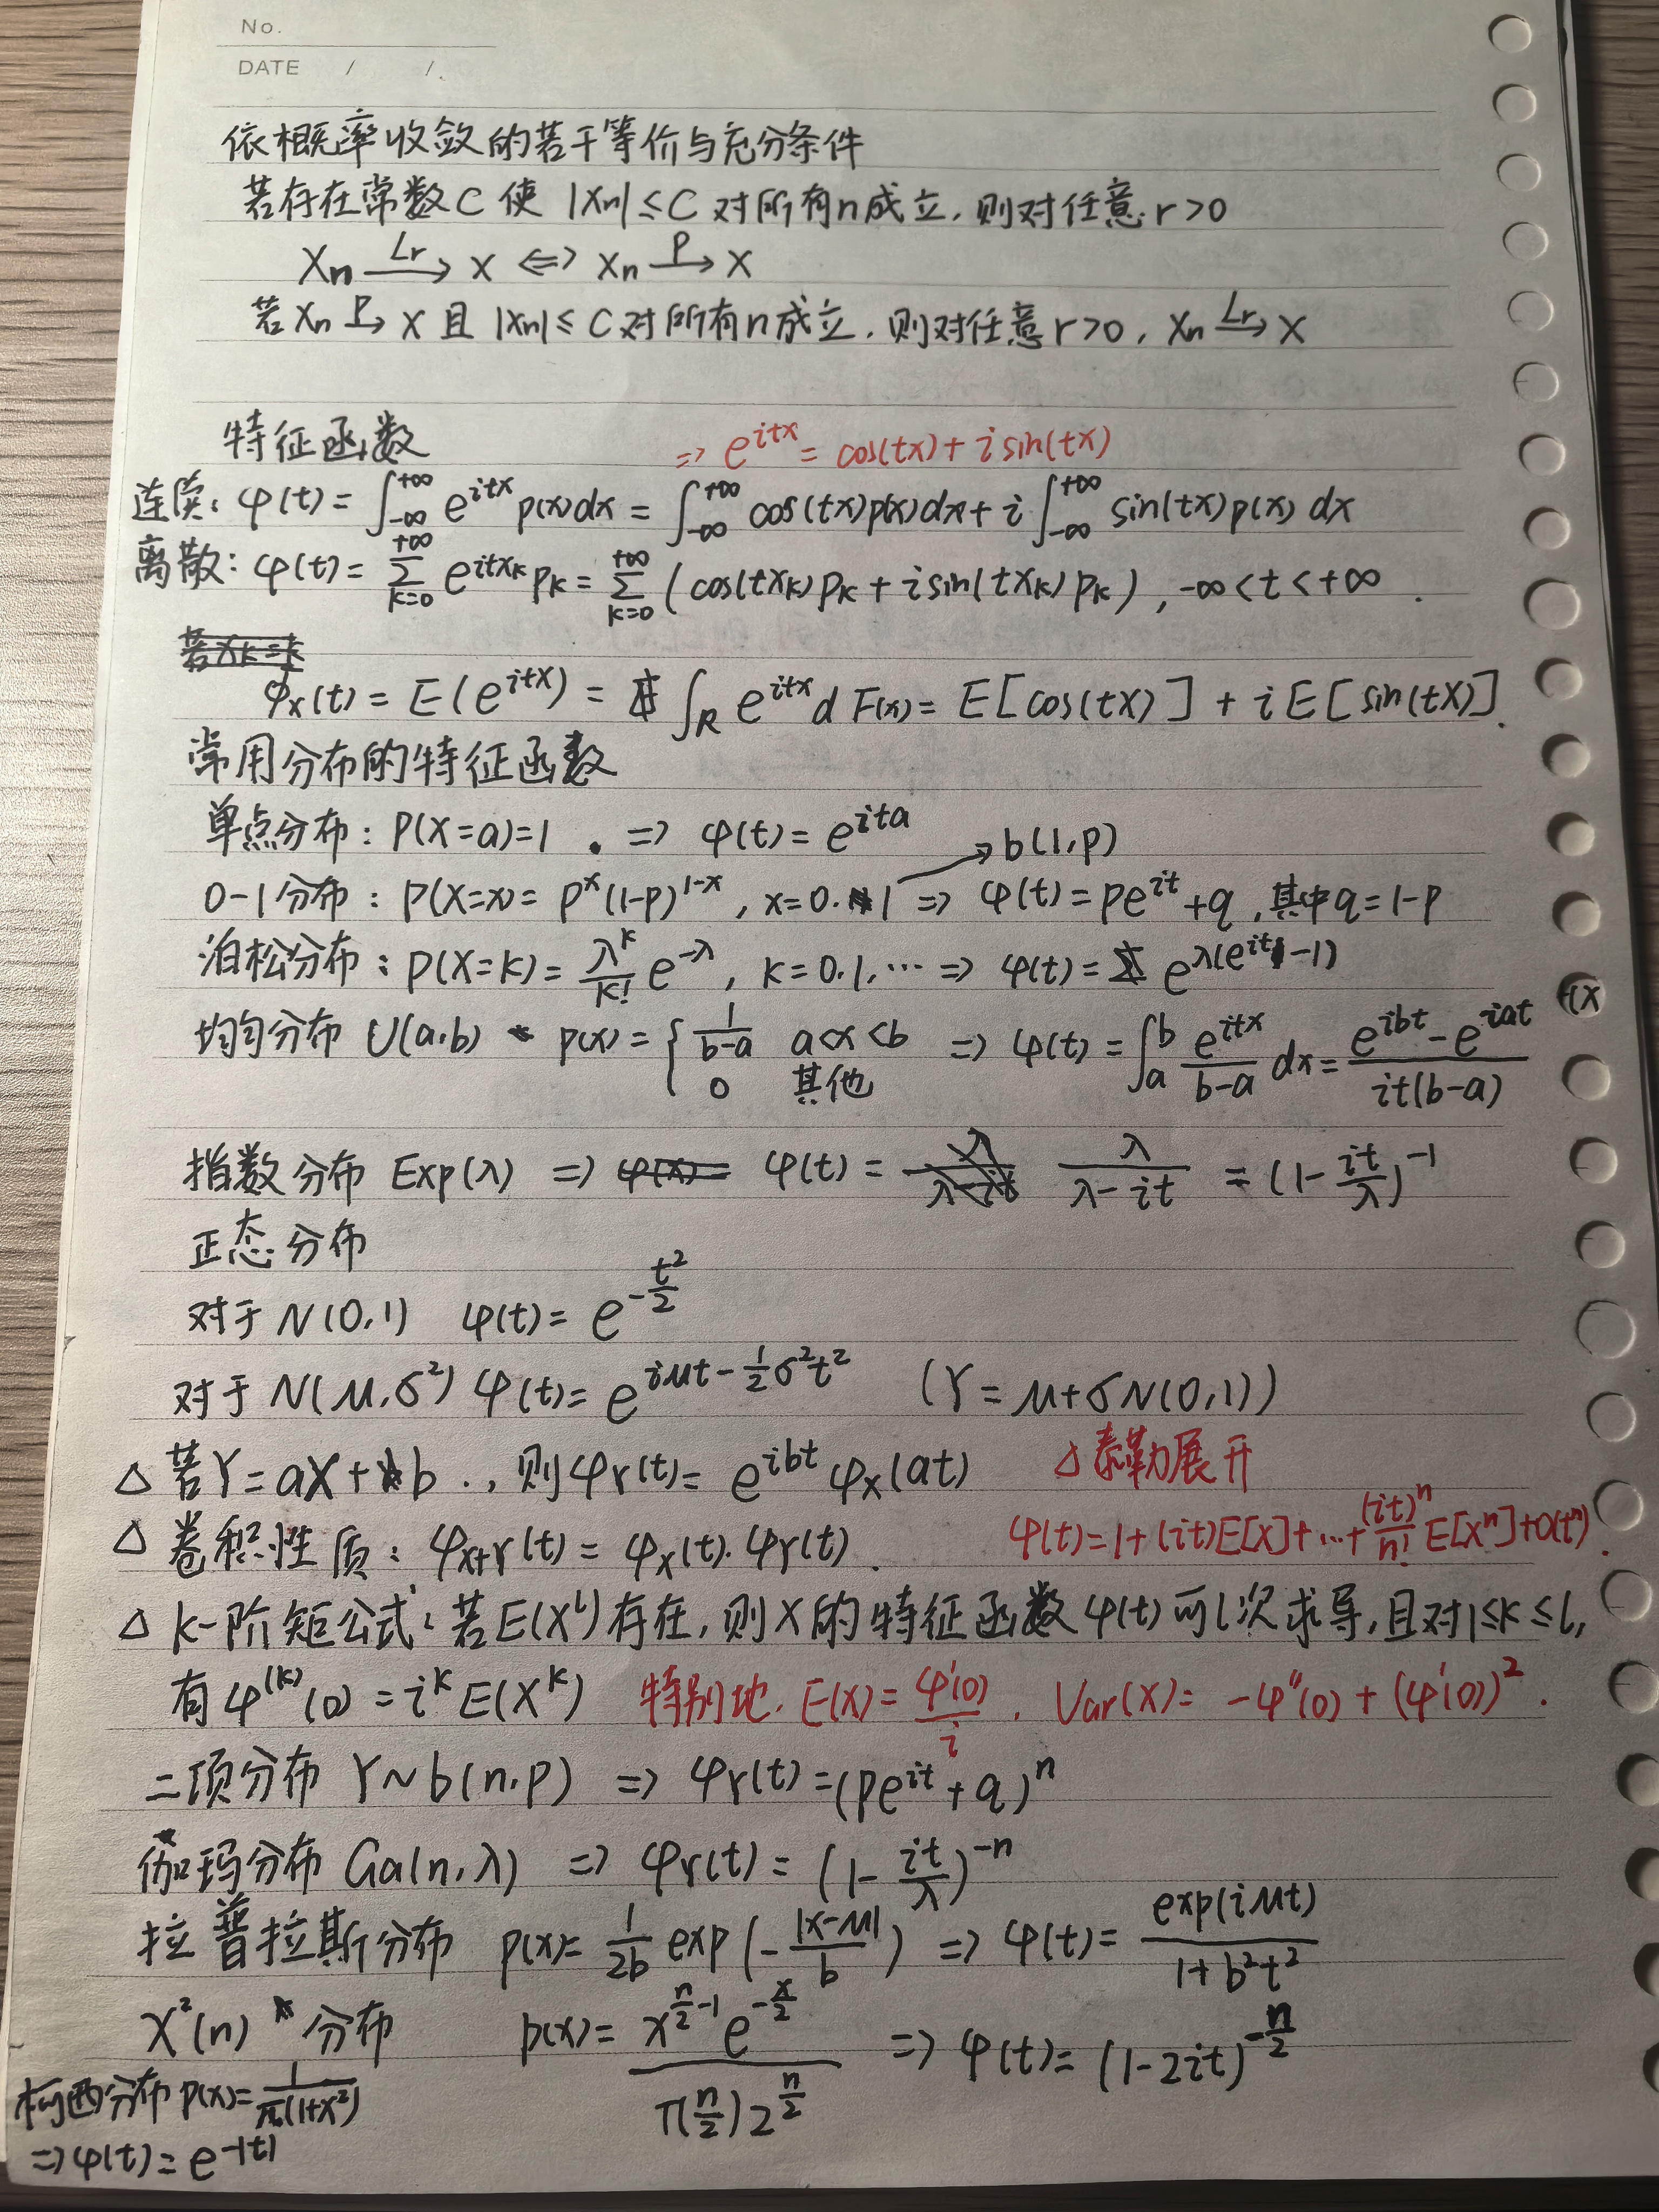 No.
DATE / /.
依概率收敛的若干等价与充分条件
若存在常数C 使 |Xn|≤C 对所有n成立, 则对任意 r>0
Xn —Lr→ X ⇔ Xn —P→ X
若 Xn —P→ X 且 |Xn|≤ C 对所有n成立, 则对任意 r>0, Xn —Lr→ X
特征函数 ⇒ e^{itx} = cos(tx) + i sin(tx)
连续: φ(t) = ∫_{-∞}^{+∞} e^{itx} p(x)dx = ∫_{-∞}^{+∞} cos(tx)p(x)dx + i ∫_{-∞}^{+∞} sin(tx)p(x) dx
离散: φ(t) = Σ_{k=0}^{+∞} e^{itx_k} p_k = Σ_{k=0}^{+∞} (cos(tx_k)p_k + i sin(tx_k) p_k), -∞<t<+∞.
若Xk=k
φ_X(t) = E(e^{itX}) = ∫_R e^{itx} d F(x) = E[cos(tX)] + i E[sin(tX)].
常用分布的特征函数
单点分布: P(X=a)=1. ⇒ φ(t) = e^{ita}
→ b(1,p)
0-1分布: P(X=x) = p^x(1-p)^{1-x}, x=0.1 ⇒ φ(t) = pe^{it}+q, 其中q=1-p
泊松分布: P(X=k) = \frac{λ^k}{k!} e^{-λ}, k=0.1,⋯ ⇒ φ(t) = e^{λ(e^{it}-1)}
均匀分布 U(a,b) p(x) = { \frac{1}{b-a} a<x<b ⇒ φ(t) = ∫_a^b \frac{e^{itx}}{b-a} dx = \frac{e^{ibt}-e^{iat}}{it(b-a)}
0 其他
指数分布 Exp(λ) ⇒ φ(t) = \frac{λ}{λ-it} = (1-\frac{it}{λ})^{-1}
正态分布
对于 N(0,1) φ(t) = e^{-\frac{t^2}{2}}
对于 N(μ,σ²) φ(t) = e^{iμt-\frac{1}{2}σ²t²} (Y = μ+σN(0,1))
△ 若Y=aX+b.., 则φ_Y(t) = e^{ibt} φ_X(at) △ 泰勒展开
△ 卷积性质: φ_{X+Y}(t) = φ_X(t)·φ_Y(t). φ(t)=1+(it)E[X]+⋯+\frac{(it)^n}{n!}E[X^n]+o(t^n).
△ k-阶矩公式: 若E(X^l)存在, 则X的特征函数φ(t)可l次求导, 且对1≤k≤l,
有φ^{(k)}(0) = i^k E(X^k) 特别地. E(X) = \frac{φ'(0)}{i}. Var(X) = -φ''(0) + (φ'(0))².
二项分布 Y~b(n,p) ⇒ φ_Y(t) = (pe^{it}+q)^n
伽玛分布 Ga(n,λ) ⇒ φ_Y(t) = (1-\frac{it}{λ})^{-n}
拉普拉斯分布 p(x) = \frac{1}{2b} exp(-\frac{|x-μ|}{b}) ⇒ φ(t) = \frac{exp(iμt)}{1+b²t²}
X²(n) 分布 p(x) = \frac{x^{\frac{n}{2}-1}e^{-\frac{x}{2}}}{Γ(\frac{n}{2})2^{\frac{n}{2}}} ⇒ φ(t) = (1-2it)^{-\frac{n}{2}}
柯西分布 p(x) = \frac{1}{π(1+x²)}
⇒ φ(t) = e^{-|t|}